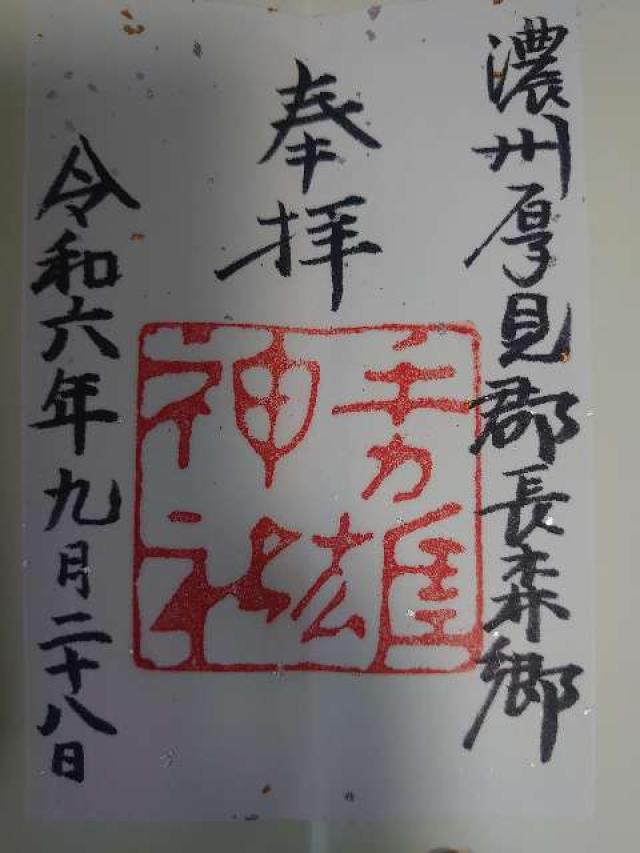 濃州厚見郡長森郷
奉拝
手力雄
神社
令和六年九月二十八日